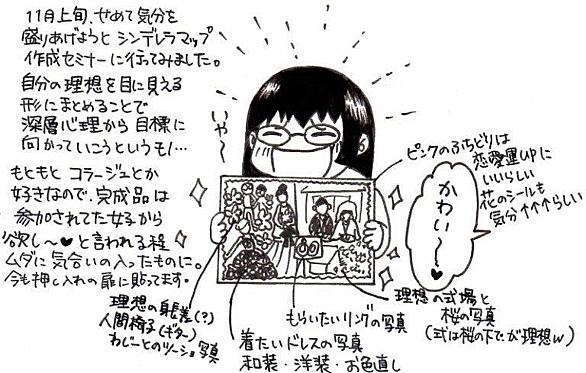 11月上旬、せめて気分を
盛りあげようとシンデレラマップ
作成セミナーに行ってみました。
自分の理想を目に見える
形にまとめることで
深層心理から目標に
向かっていこうというもの…
もともとコラージュとか
好きなので、完成品は
参加されてた女子から
欲し〜♥と言われる程
ムダに気合いの入ったものに。
今も押し入れの扉に貼ってます。
いや〜
ピンクのふちどりは
恋愛運UPに
いいらしい
花のシールも
気分↑↑↑らしい
かわい〜♥
理想の身長差(?)
人間椅子(ギター)
わじーとのツーショ写真
着たいドレスの写真
和装・洋装・お色直し
もらいたいリングの写真
理想の式場と
桜の写真
(式は桜の下で、が理想w)